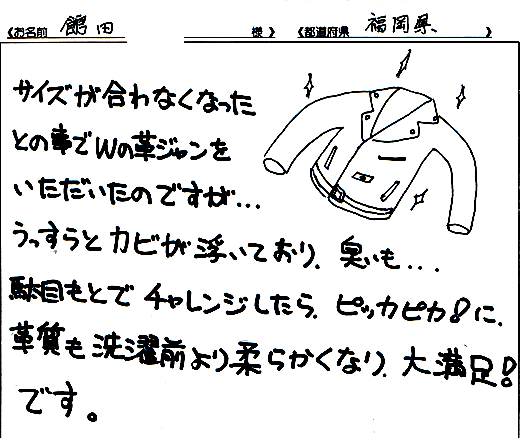 《お名前 館田 様》 《都道府県 福岡県 》
サイズが合わなくなった
との事でWの革ジャンを
いただいたのですが...
うっすらとカビが浮いており、臭いも...
駄目もとでチャレンジしたら、ピッカピカ!に、
革質も洗濯前より柔らかくなり、大満足!
です。